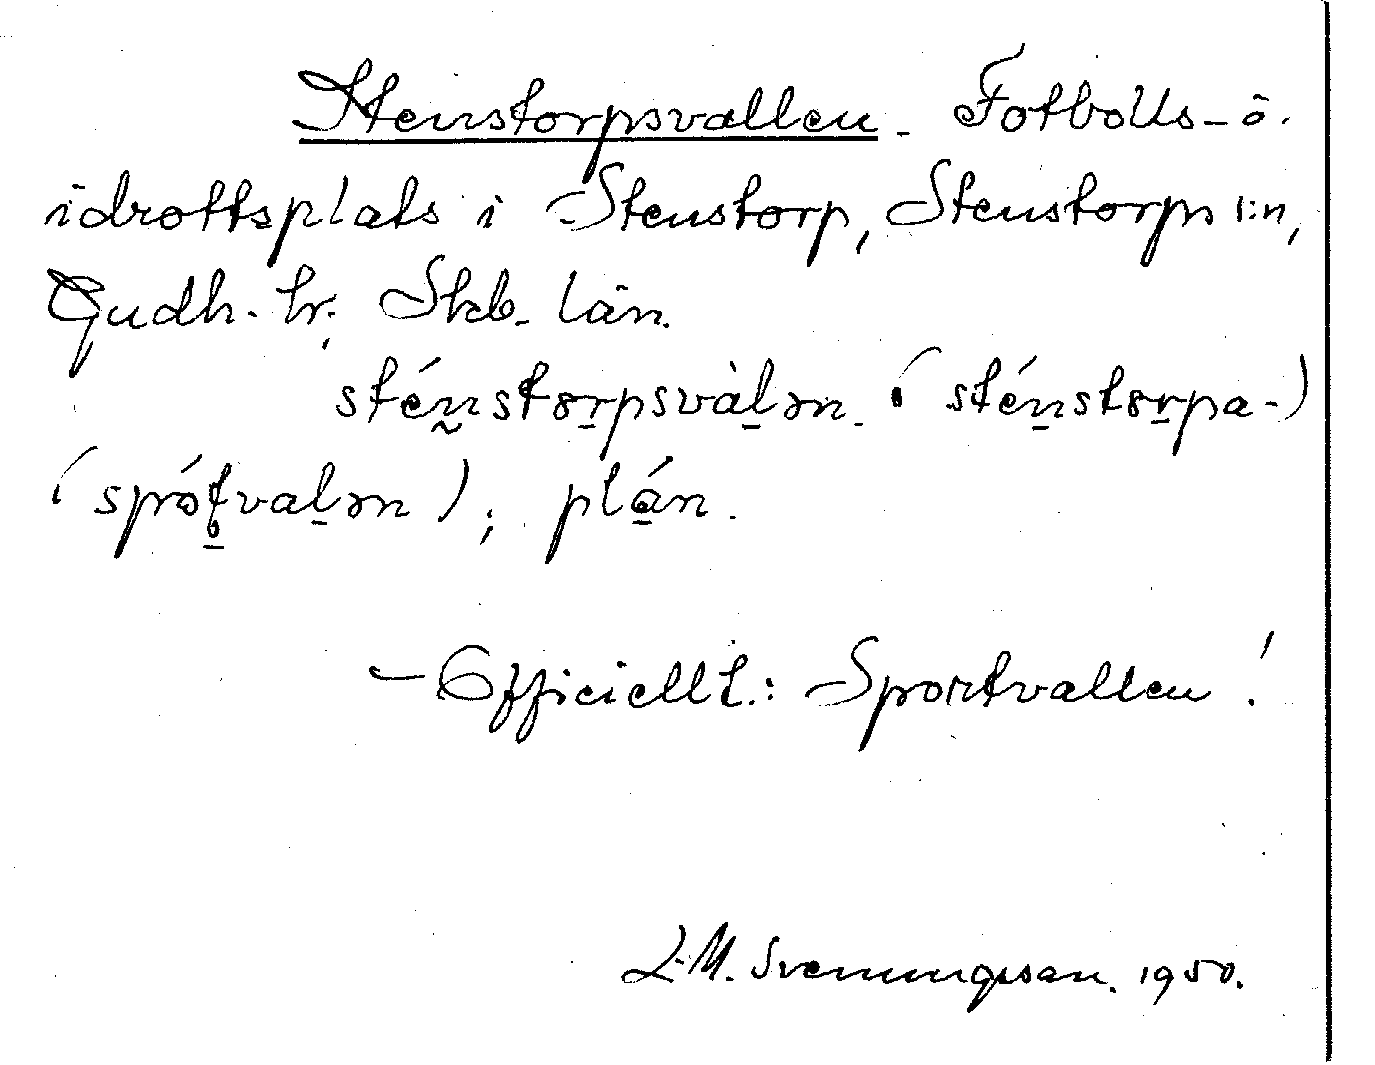 Stenstorpsvallen - Fotbolls- o.
idrottsplats i Stenstorp, Stenstorps s:n,
Gudh. hr. Skb. län.
sténstorpsvàlən. (sténstorpa-)
(spótvalən); plán.
– Officiellt.: Sportvallen!
L-M. Svenungsson. 1950.